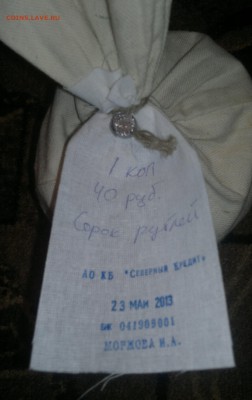 COINS.LAVE.RU
1 коп
40 руб.
Сорок рублей
АО КБ "Северный Кредит"
23 МАЯ 2013
БИК 041909001